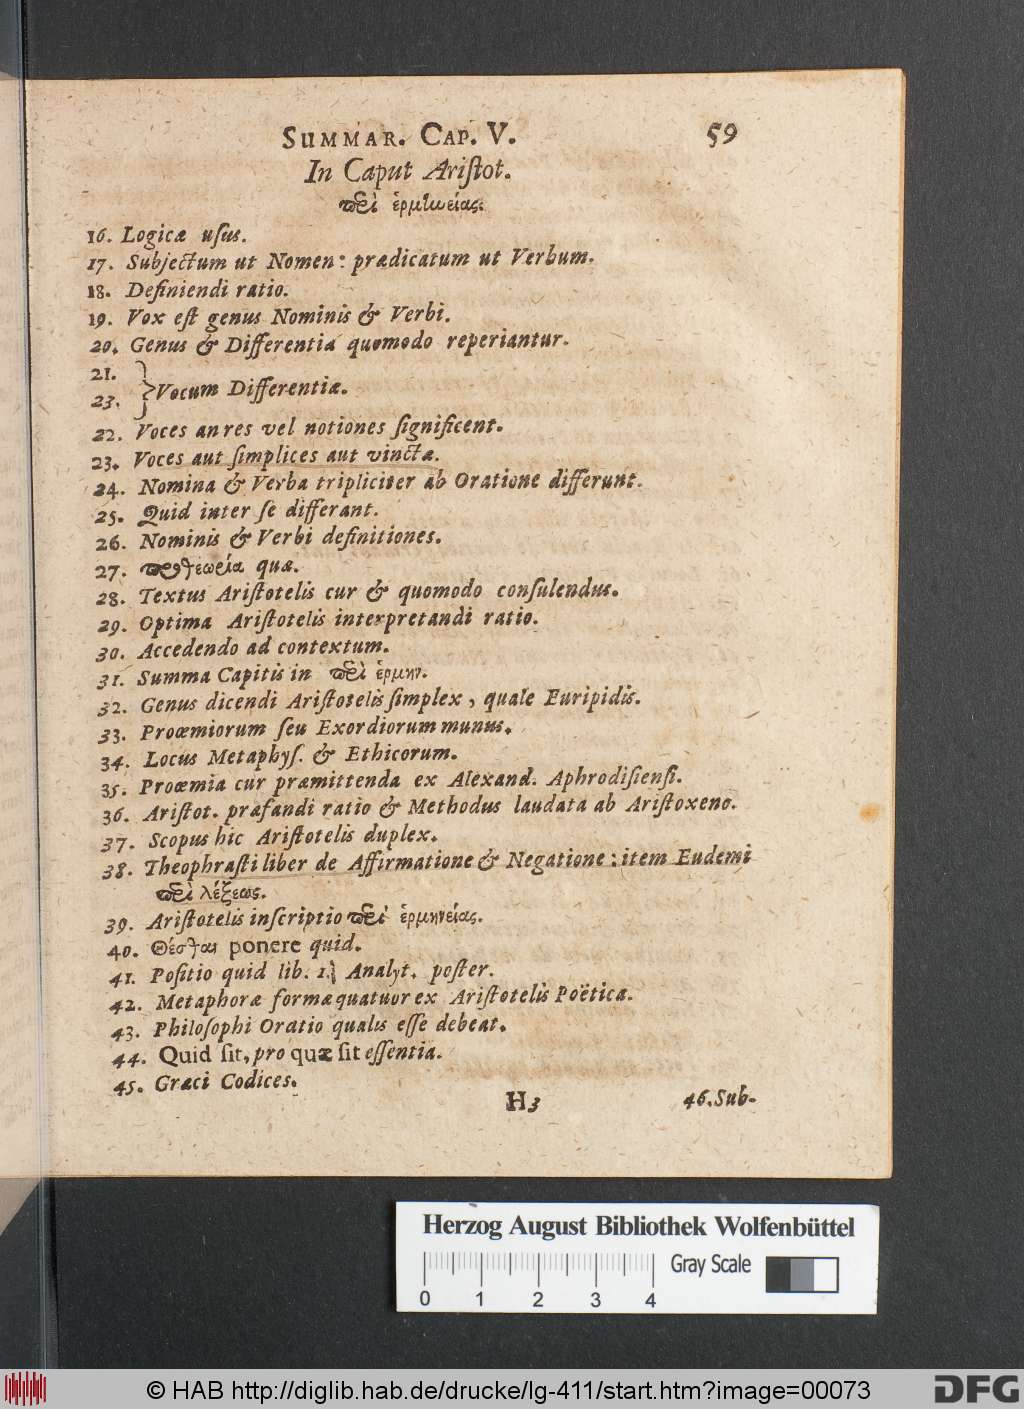 SUMMAR. CAP. V. 59
In Caput Ariſtot.
περὶ ἑρμηνείας.
16. Logicæ uſus.
17. Subjectum ut Nomen: prædicatum ut Verbum.
18. Definiendi ratio.
19. Vox eſt genus Nominis & Verbi.
20. Genus & Differentia quomodo reperiantur.
21.
23. } Vocum Differentiæ.
22. Voces an res vel notiones ſignificent.
23. Voces aut ſimplices aut vinctæ.
24. Nomina & Verba tripliciter ab Oratione differunt.
25. Quid inter ſe differant.
26. Nominis & Verbi definitiones.
27. προθεωρία quæ.
28. Textus Ariſtotelis cur & quomodo conſulendus.
29. Optima Ariſtotelis interpretandi ratio.
30. Accedendo ad contextum.
31. Summa Capitis in περὶ ἑρμην.
32. Genus dicendi Ariſtotelis ſimplex, quale Euripidis.
33. Proœmiorum ſeu Exordiorum munus.
34. Locus Metaphyſ. & Ethicorum.
35. Proœmia cur præmittenda ex Alexand. Aphrodiſienſi.
36. Ariſtot. præfandi ratio & Methodus laudata ab Ariſtoxeno.
37. Scopus hic Ariſtotelis duplex.
38. Theophraſti liber de Affirmatione & Negatione: item Eudemi
περὶ λέξεως.
39. Ariſtotelis inſcriptio περὶ ἑρμηνείας.
40. Θέσθαι ponere quid.
41. Poſitio quid lib. 1. Analyt. poſter.
42. Metaphoræ formæ quatuor ex Ariſtotelis Poëtica.
43. Philoſophi Oratio qualis eſſe debeat.
44. Quid ſit, pro quæ ſit eſſentia.
45. Græci Codices.
H3 46. Sub-
Herzog August Bibliothek Wolfenbüttel
Gray Scale
0 1 2 3 4
© HAB http://diglib.hab.de/drucke/lg-411/start.htm?image=00073
DFG